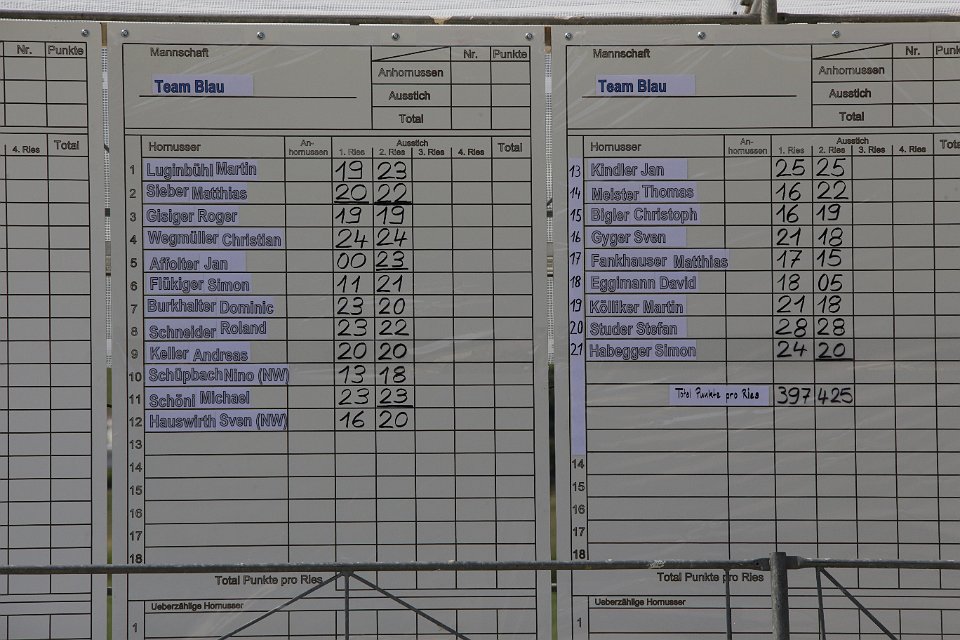 Nr. Punkte
4. Ries Total
Mannschaft
Team Blau
Nr. Punkte
Anhornussen
Ausstich
Total
Hornusser An-hornussen Ausstich Total
1. Ries 2. Ries 3. Ries 4. Ries
1 Luginbühl Martin 19 23
2 Sieber Matthias 20 22
3 Gisiger Roger 19 19
4 Wegmüller Christian 24 24
5 Affolter Jan 00 23
6 Flükiger Simon 11 21
7 Burkhalter Dominic 23 20
8 Schneider Roland 23 22
9 Keller Andreas 20 20
10 Schüpbach Nino (NW) 13 18
11 Schöni Michael 23 23
12 Hauswirth Sven (NW) 16 20
13
14
15
16
17
18
Total Punkte pro Ries
Ueberzählige Hornusser
1
Mannschaft
Team Blau
Nr. Punk
Anhornussen
Ausstich
Total
Hornusser An-hornussen Ausstich Tota
1. Ries 2. Ries 3. Ries 4. Ries
13 Kindler Jan 25 25
14 Meister Thomas 16 22
15 Bigler Christoph 16 19
16 Gyger Sven 21 18
17 Fankhauser Matthias 17 15
18 Eggimann David 18 05
19 Kölliker Martin 21 18
20 Studer Stefan 28 28
21 Habegger Simon 24 20
Total Punkte pro Ries 397 425
14
15
16
17
18
Total Punkte pro Ries
Ueberzählige Hornusser
1